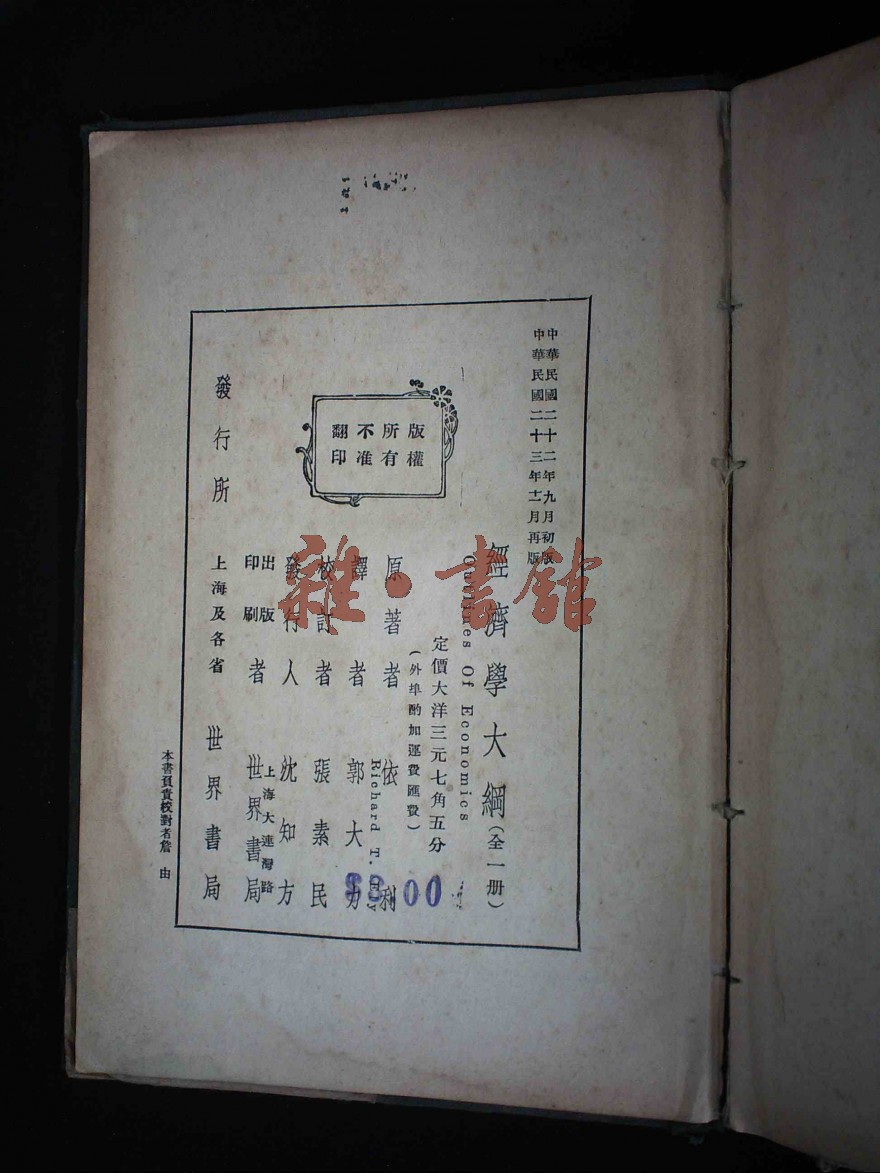 中華民國二十二年九月初版
中華民國二十三年十二月再版
經濟學大綱(全一册)
Outlines Of Economics
定價大洋三元七角五分
(外埠酌加運費匯費)
原著者 依利
Richard T. Ely
譯者 郭大力
校訂者 張素民
發行人 沈知方
出版印刷者 上海大連灣路世界書局
發行所 上海及各省 世界書局
版權所有
不准翻印
本書負責校對者詹由
$3.00
雜·書館